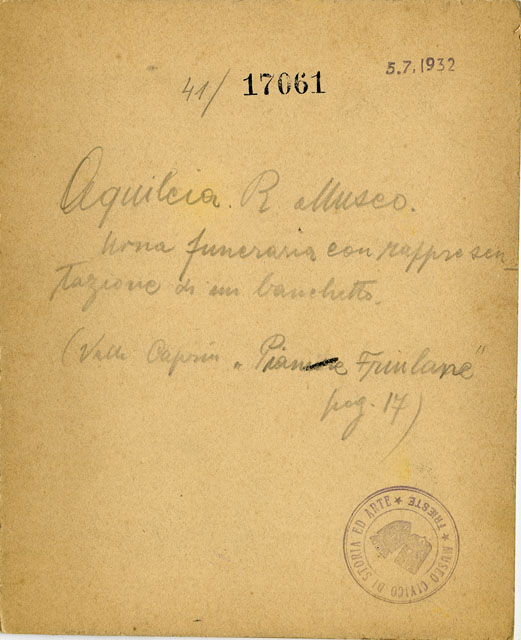 5.7.1932
41/ 17061
Aquileia. R. Museo.
Urna funeraria con rappresen-
tazione di un banchetto.
( Caprin „ Pianure Friulane"
pag. 17)
MUSEO CIVICO DI STORIA ED ARTE ★ TRIESTE ★